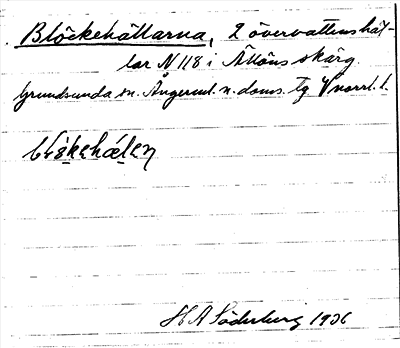 Blöckehällarna, 2 övervattenshäl-
lar N 118 i Ällöns skärg.
Grundsunda sn. Ångerml. n. doms. tg Vnorrl. l.
blökehælen
H A Söderberg 1936